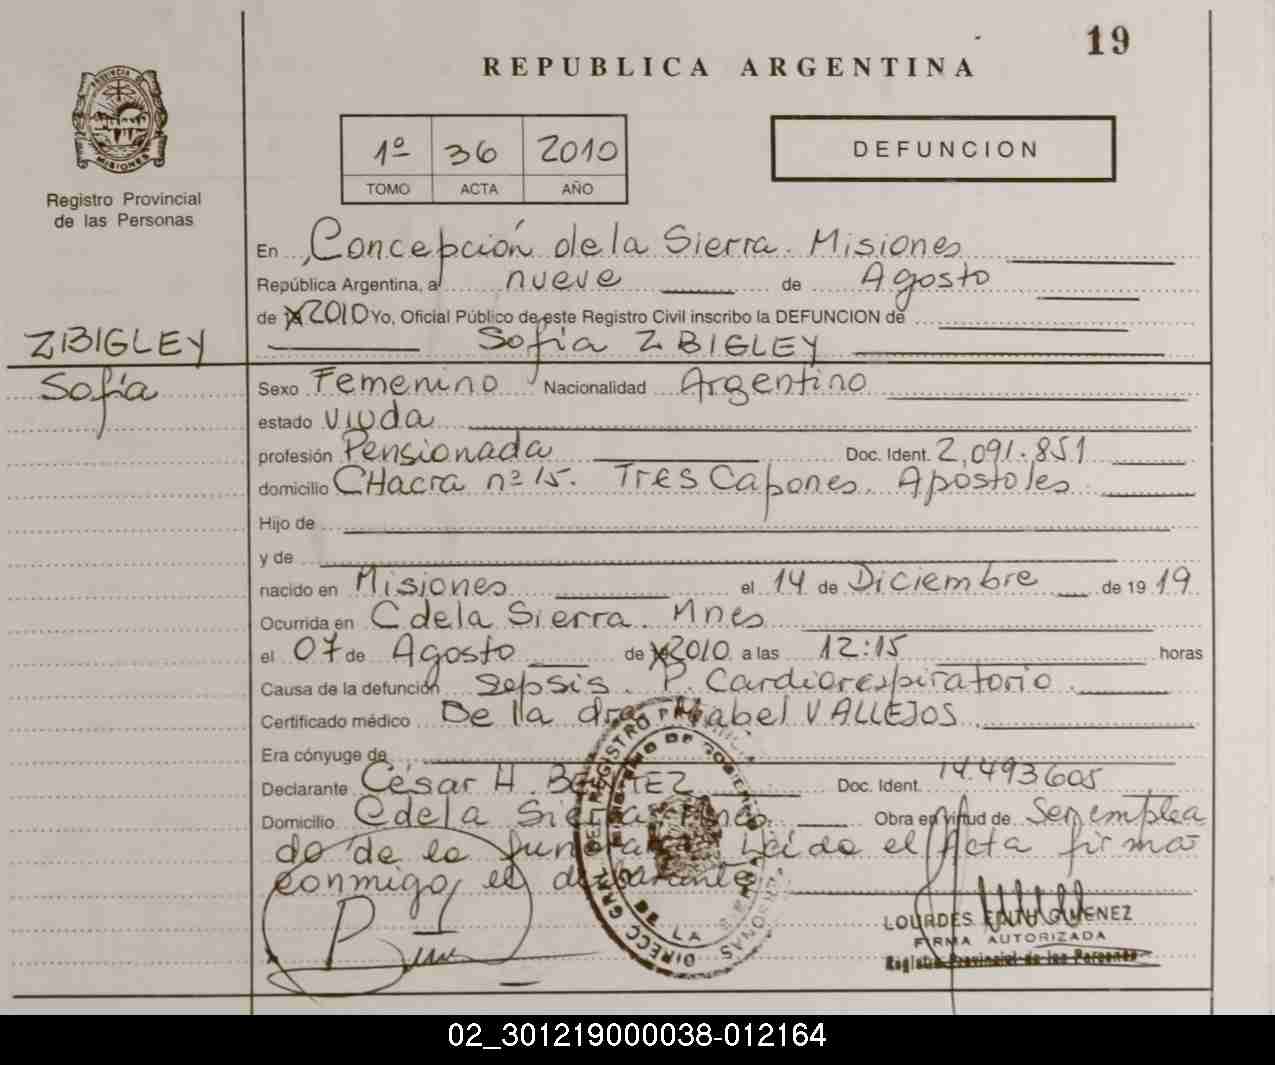 19
REPUBLICA ARGENTINA
PROVINCIA DE MISIONES
Registro Provincial
de las Personas
1º 36 2010
TOMO ACTA AÑO
DEFUNCION
En Concepción de la Sierra. Misiones
República Argentina, a nueve de Agosto
de 2010 Yo, Oficial Público de este Registro Civil inscribo la DEFUNCION de
Sofía ZBIGLEY
ZBIGLEY
Sofía
Sexo Femenino Nacionalidad Argentino
estado Viuda
profesión Pensionada Doc. Ident. 2,091.851
domicilio CHacra nº 15. Tres Capones. Apostoles
Hijo de
y de
nacido en Misiones el 14 de Diciembre de 19 19
Ocurrida en C de la Sierra. Mnes
el 07 de Agosto de 2010 a las 12:15 horas
Causa de la defunción Sepsis. P. Cardiorespiratorio
Certificado médico De la dra Mabel VALLEJOS
Era cónyuge de
Declarante César H. BENITEZ Doc. Ident. 14.493605
Domicilio C de la Sierra Mnes. Obra en virtud de Ser emplea
do de la funeraria Leida el Acta firma
conmigo, el declarante
LOURDES EDITH GIMENEZ
FIRMA AUTORIZADA
Registro Provincial de las Personas
02_301219000038-012164